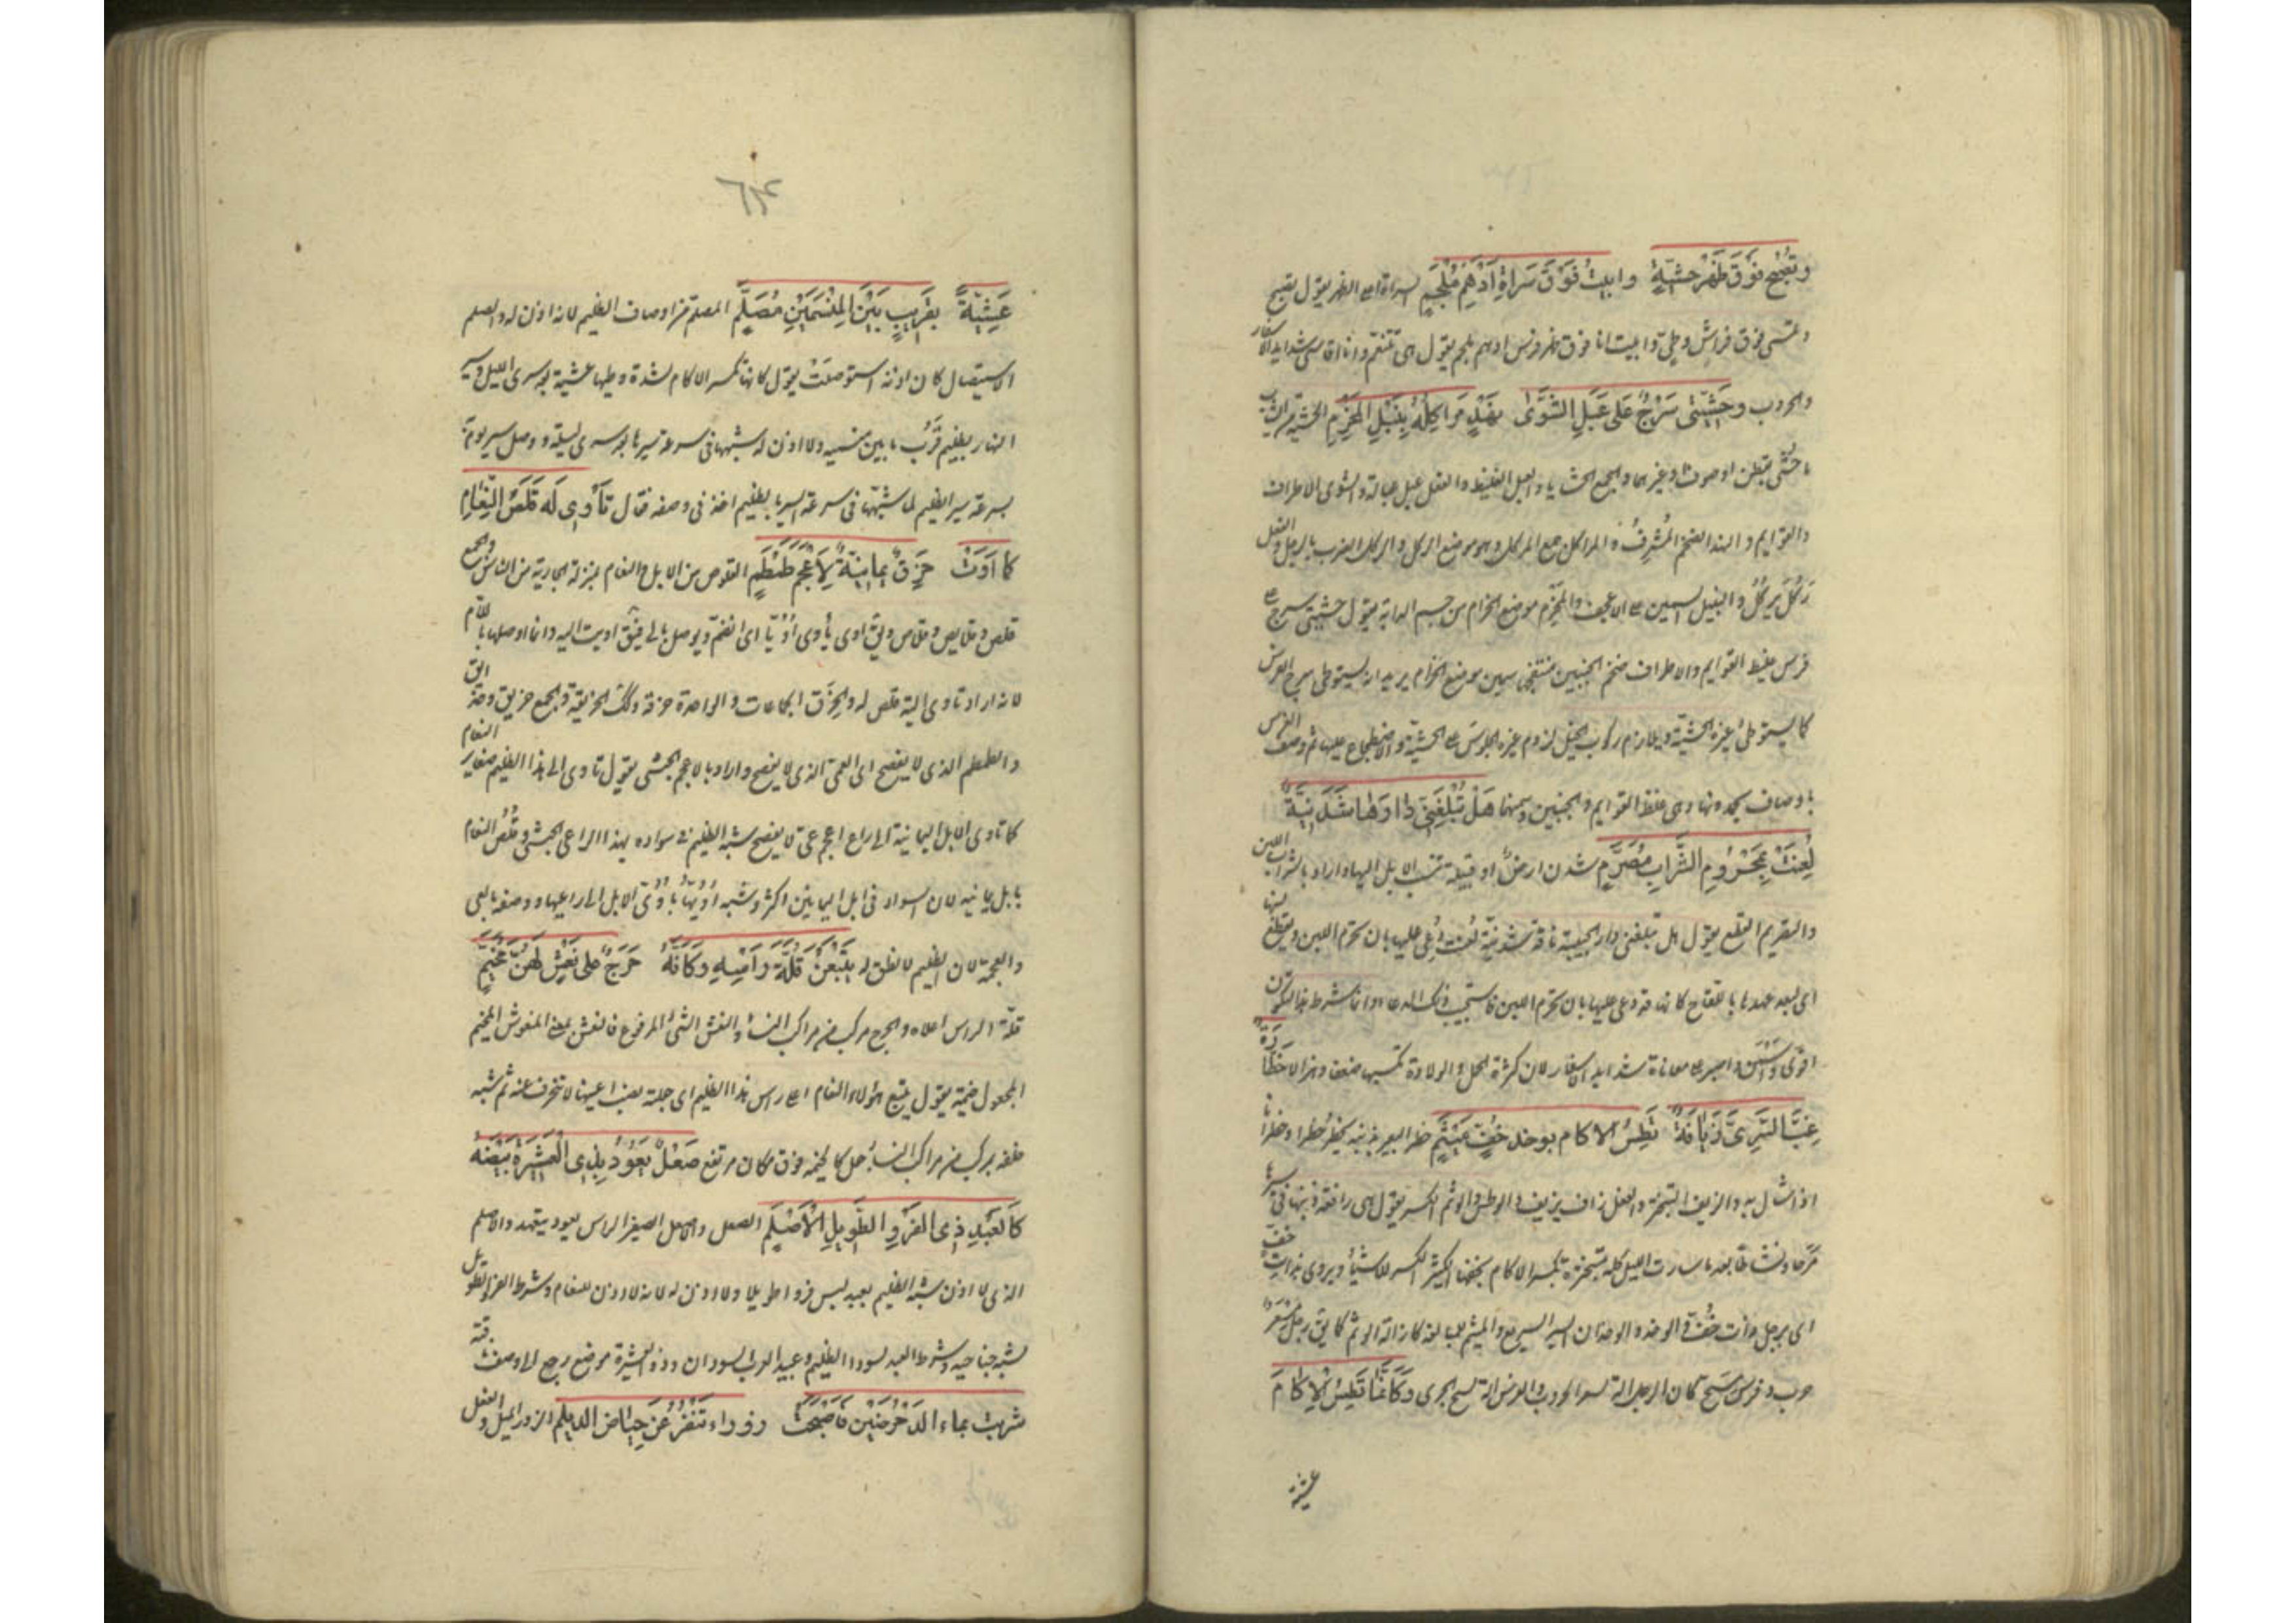 وتصبح فوق ظهر حشية وابيت فوق سراة ادهم ملجم السراة اعلى الظهر يقول تصبح
وتمسى فوق فراش وطى وابيت انا فوق ظهر فرس ادهم ملجم يقول هى تتنعم وانا اقاسى شدايد الاسفار
والحروب وحشيتى سرج على عبل الشوى نهد مراكله نبيل المحزم الحشية من الثياب
ما حشى بقطن او صوف او غيرهما والجمع الحشايا والعبل الغليظ والفعل عبل عبالة والشوى الاطراف
والقوايم والنهد الضخم المشرف والمراكل جمع المركل وهو موضع الركل والركل الضرب بالرجل والفعل
ركل يركل والنبيل السمين على الاعجف والمحزم موضع الحزام من جسم الدابة يقول حشيتى سرج على
فرس غليظ القوايم والاطراف ضخم الجنبين منتفخ سمين موضع الحزام يريد انه يستوطى سرج الفرس
كما يستوطى غيره الحشية ويلازم ركوب الخيل لزوم غيره الجلوس على الحشية والاضطجاع عليها ثم وصف الفرس
باوصاف يحمدونها وهى غلظ القوايم والجنبين وسمنها هل تبلغنى دارها شدنية
لعنت بمحروم الشراب مصرم شدن ارض او قبيلة تنسب الابل اليها واراد بالشراب اللبن
والتصريم القطع يقول هل تبلغنى دار الحبيبة ناقة شدنية لعنت دعى عليها بان تحرم اللبن ويقطع لبنها
اى لبعد عهدها باللقاح كانه قد دعى عليها بان تحرم اللبن فاستجيب ذلك الدعاء وانما شرط هذا لتكون
اقوى واسمن واصبر على معاناة شدايد الاسفار لان كثرة الحمل والولادة تكسبها ضعفا وهزالا خطارة
غب السرى زيافة تطس الاكام بوخد خف ميثم خطر البعير بذنبه يخطر خطرا وخطرانا
اذا شال به والزيف التبختر والفعل زاف يزيف والوطس والوثم الكسر يقول هى رافعة ذنبها فى سيرها
مرحا ونشاطا بعد ما سارت الليل كله متبخترة تكسر الاكام بخفها الكثير الكسر للاشياء ويروى بذات خف
اى برجل ذات خف والوخد والوخدان السير السريع والميثم للمبالغة كانه الة الوثم كما يق رجل مسعر
حرب وفرس مسح كان الرجل الة لسعر الحروب والفرس الة لسح الجرى وكانما تطس الاكام
عشية
٦٢٤
عشية بقريب بين المنسمين مصلم المصلم من اوصاف الظليم لانه لا اذن له والصلم
الاستيصال كان اذنه استوصلت يقول كانها تكسر الاكام لشدة وطيها عشية بعد سرى الليل وسير
النهار بظليم قرب ما بين منسميه ولا اذن له شبهها فى سرعة سيرها بعد سرى ليلة ووصل سير يوم به
بسرعة سير الظليم لما شبهها فى سرعة السير بالظليم اخذ فى وصفه فقال تاوى له قلص النعام
كما اوت حزق يمانية لاعجم طمطم القلوص من الابل والنعام بمنزلة الجارية من الناس والجمع
قلص وقلايص وقلاص ويق اوى ياوى اويا اى انضم ويوصل بالى فيق اويت اليه وانما اوصلها باللام
لانه اراد تاوى اليه قلص له والحزق الجماعات والواحدة حزقة وكذلك الحزيقة والجمع حزيق وحزايق
والطمطم الذى لا يفصح اى العى الذى لا يفصح واراد بالاعجم الحبشى يقول تاوى الى هذا الظليم صغاير النعام
كما تاوى الابل اليمانية الى راع اعجم عى لا يفصح شبه الظليم فى سواده بهذا الراعى الحبشى وقلص النعام
بابل يمانية لان السواد فى ابل اليمانين اكثر وشبه اويها باوى الابل الى راعيها ووصفه بالعى
والعجمة لان الظليم لا نطق له يتبعن قلة راسه وكانه حرج على نعش لهن مخيم
قلة الراس اعلاه والحرج مركب من مراكب النساء والنعش الشئ المرفوع فالنعش بمعنى المنعوش والمخيم
المجعول خيمة يقول يتبع هؤلاء النعام اعلى راس هذا الظليم اى جعلته نصب اعينها لا تنحرف عنه ثم شبه
خلفه بمركب من مراكب النساء جعل كالخيمة فوق مكان مرتفع صعل يعود بذى العشيرة بيضه
كالعبد ذى الفرو الطويل الاصلم الصعل والاصعل الصغير الراس يعود يتعهد والاصلم
الذى لا اذن له شبه الظليم بعبد لبس فروا طويلا ولا اذن له لانه لا اذن للنعام وشرط الفرو الطويل
ليشبه جناحيه وشرط العبد لسواد الظليم وعبيد العرب السودان وذو العشيرة موضع رجع الى وصف ناقته
شربت بماء الدحرضين فاصبحت زوراء تنفر عن حياض الديلم الزور الميل والفعل